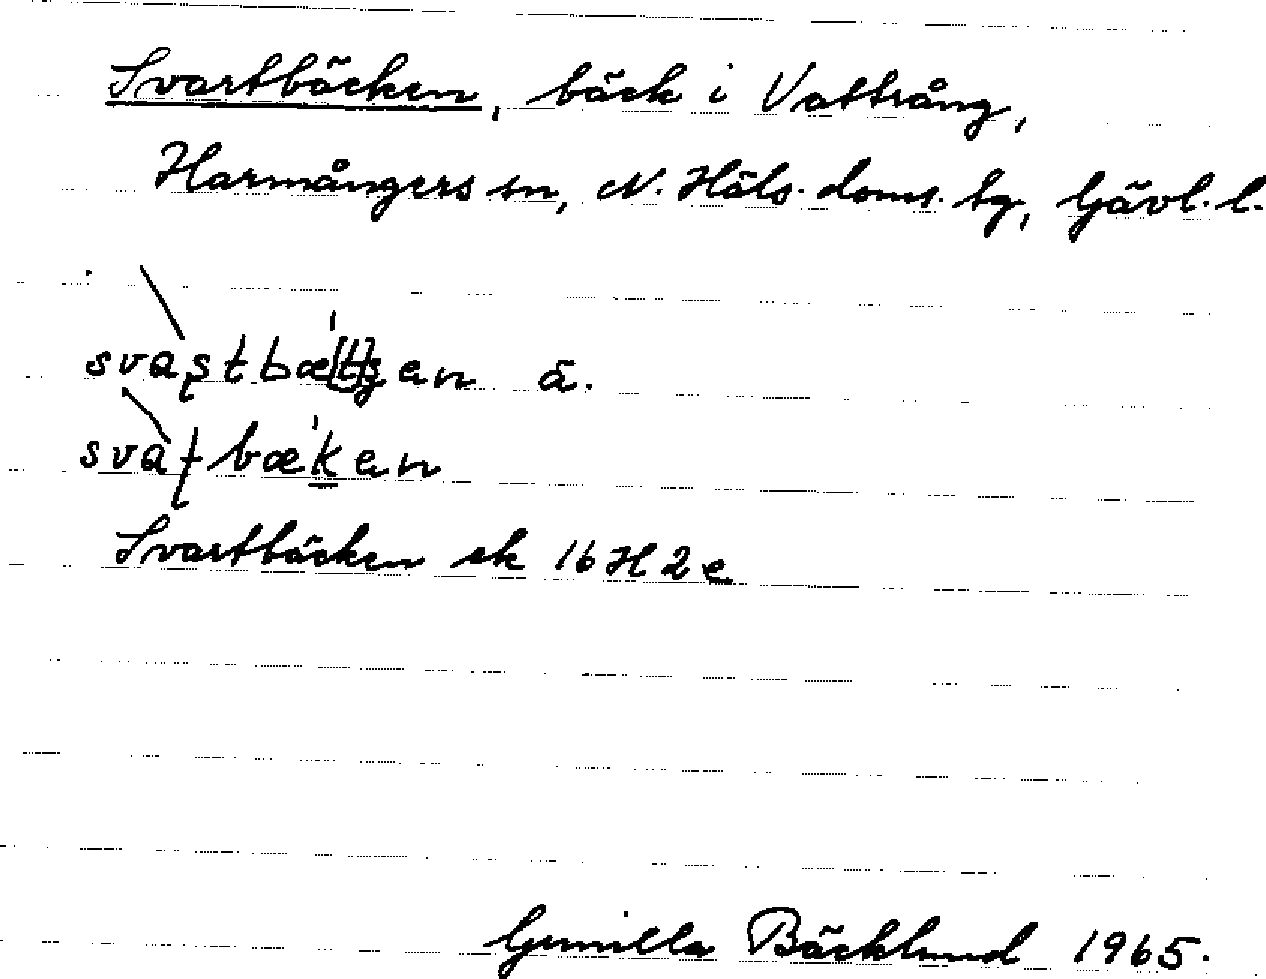 Svartbäcken, bäck i Vattrång,
Harmångers sn, N. Häls. doms. tg, Gävl. l.
ä.
Svartbäcken ek 16H2e
Gunilla Bäcklund 1965.